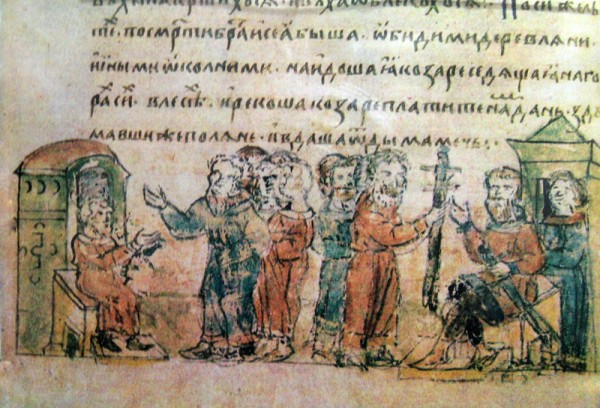 По си же лѣ
тѣ. по смрти браи сеѧ быша. ѡбидими деревлѧни.
инымии ѡколними. наидоша ꙗ козаре седѧщаѧ на го
рах си. в лесѣ. и рекоша козаре платите на дань. здѹ
мавши же полѧне. и вдаша ѿ дыма мечь: